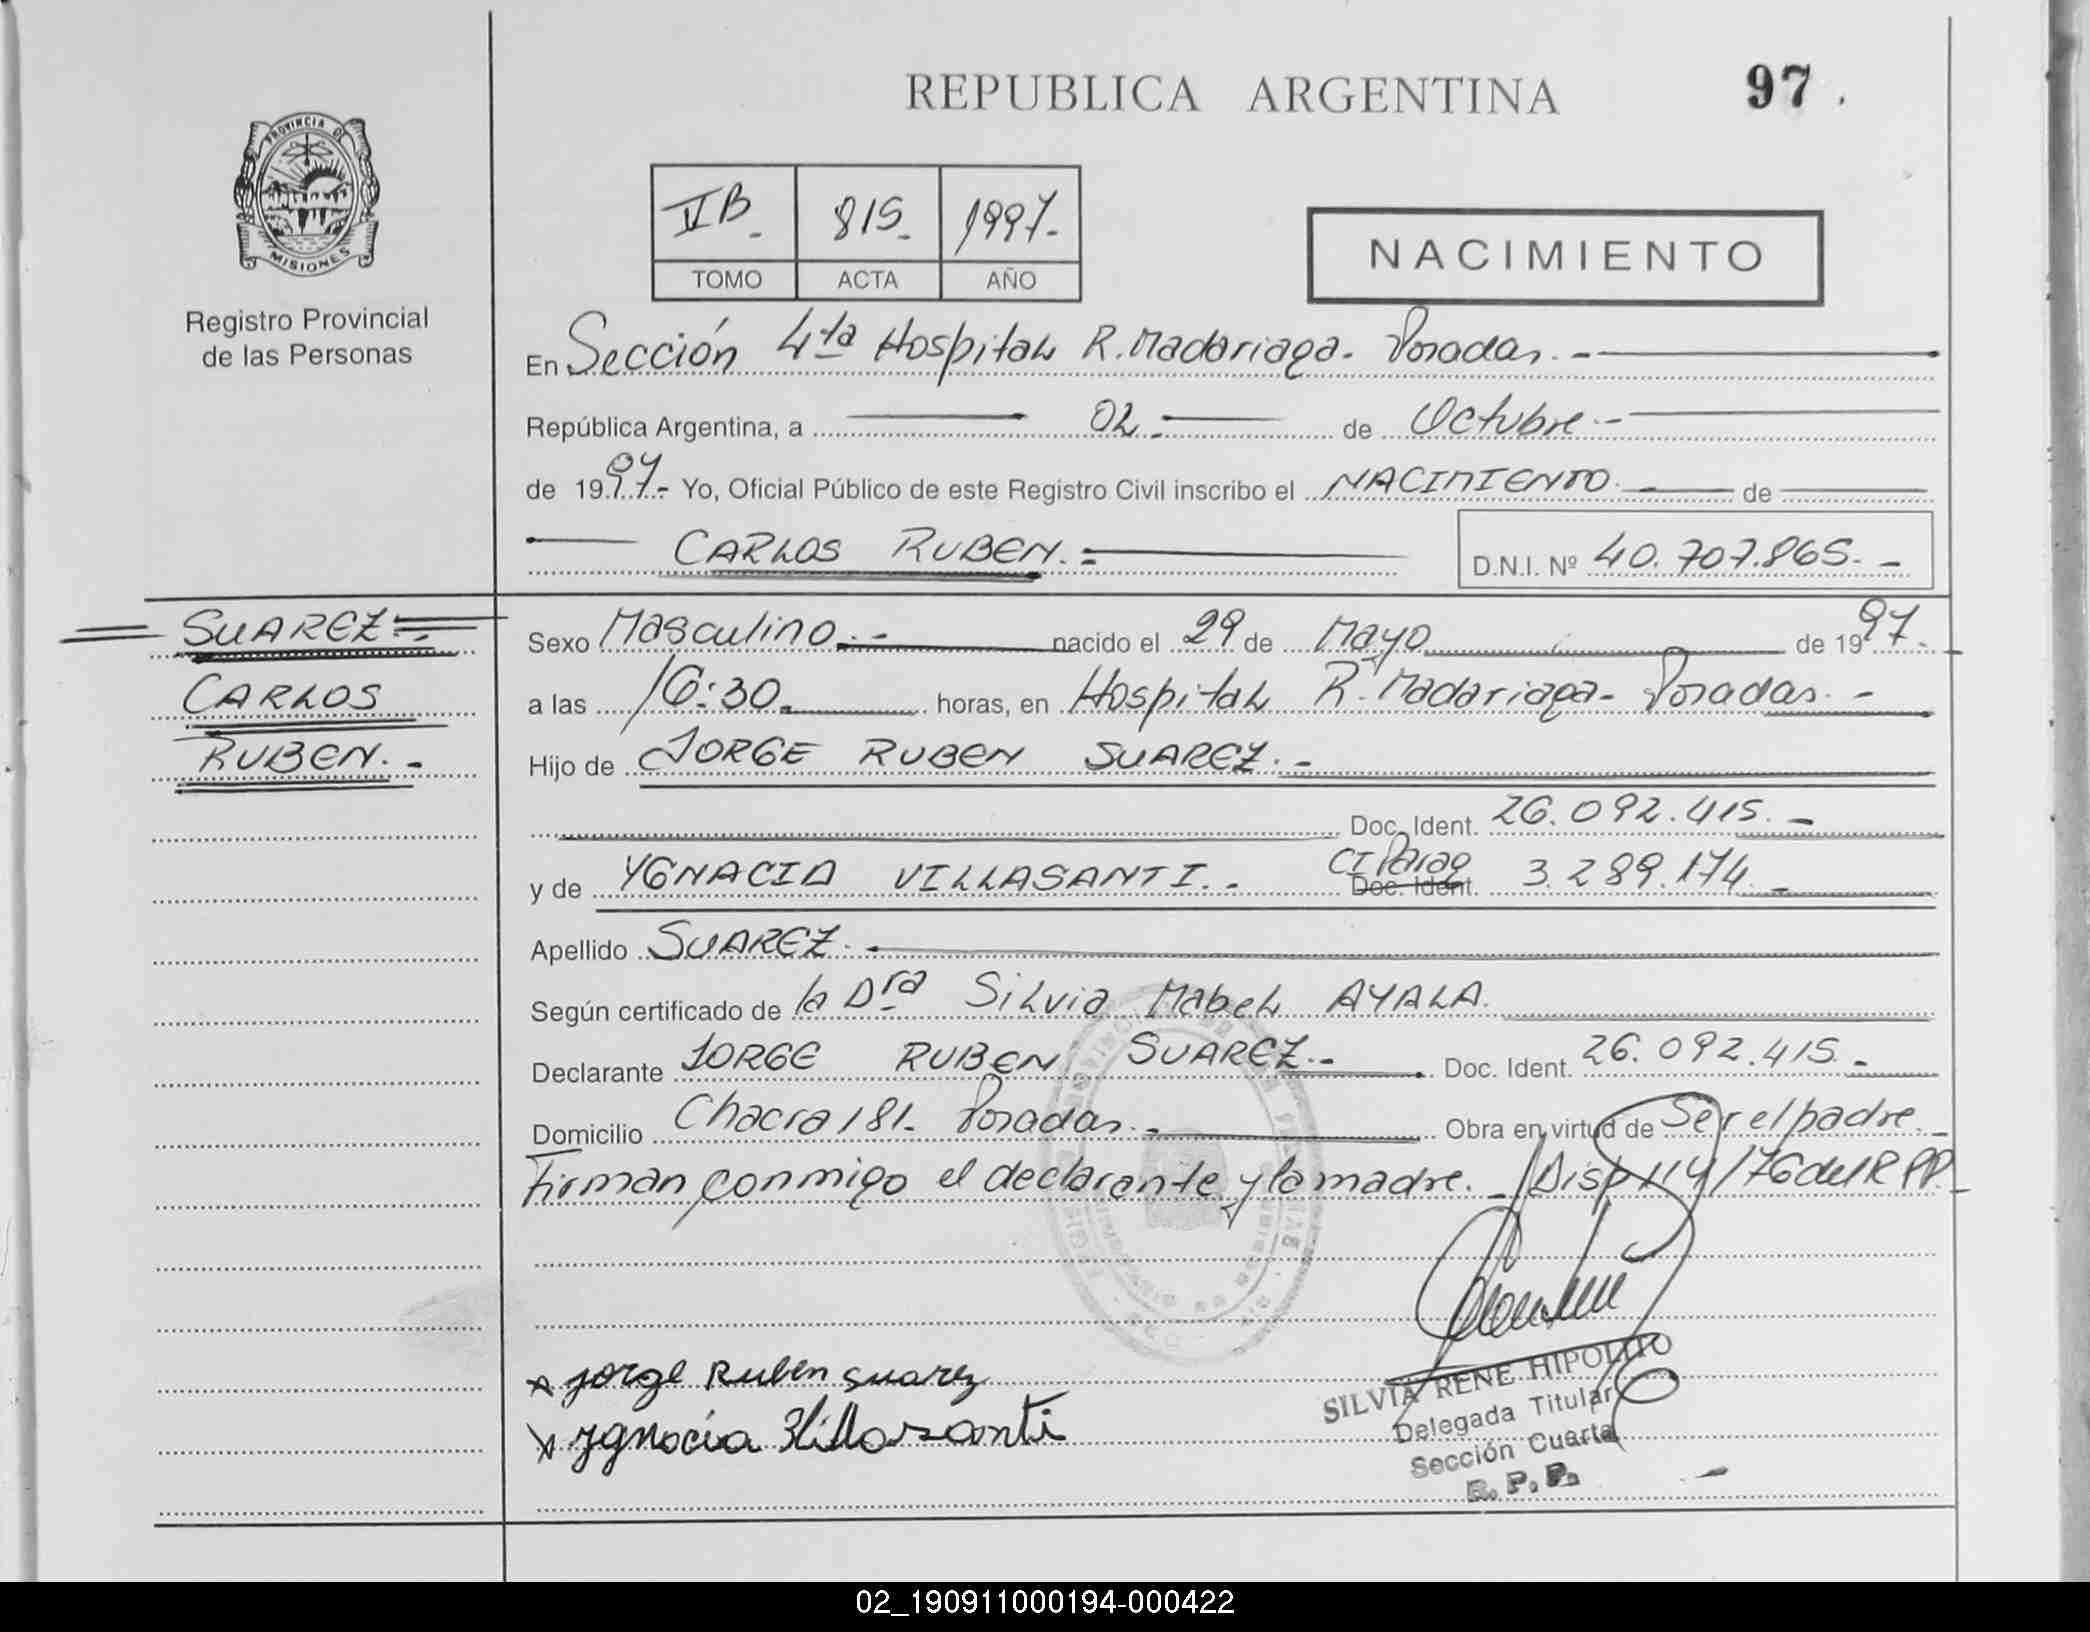 REPUBLICA ARGENTINA
97.
PROVINCIA DE
MISIONES
Registro Provincial
de las Personas
815. 1997.
TOMO ACTA AÑO
NACIMIENTO
En Sección 4ta Hospital R. Madariaga. Posadas.-
República Argentina, a 02.- de Octubre.-
de 1997.- Yo, Oficial Público de este Registro Civil inscribo el NACIMIENTO. de
CARLOS RUBEN.- D.N.I. Nº 40.707.865.-
SUAREZ.-
CARLOS
RUBEN.-
Sexo Masculino.- nacido el 29 de Mayo de 1997.-
a las 16:30. horas, en Hospital R. Madariaga- Posadas.-
Hijo de JORGE RUBEN SUAREZ.-
Doc. Ident. 26.092.415.-
y de YGNACIA VILLASANTI.- CI Parag Doc. Ident. 3.289.174.-
Apellido SUAREZ.
Según certificado de la Dra Silvia Mabel AYALA.
Declarante JORGE RUBEN SUAREZ.- Doc. Ident. 26.092.415.-
Domicilio Chacra 181. Posadas.- Obra en virtud de Ser el padre.-
Firman conmigo el declarante y la madre.- Disp 114/76 del RPP.-
Jorge Ruben Suarez
Ygnacia Villasanti
SILVIA RENE HIPOLITO
Delegada Titular
Sección Cuarta
R. P. P.
02_190911000194-000422